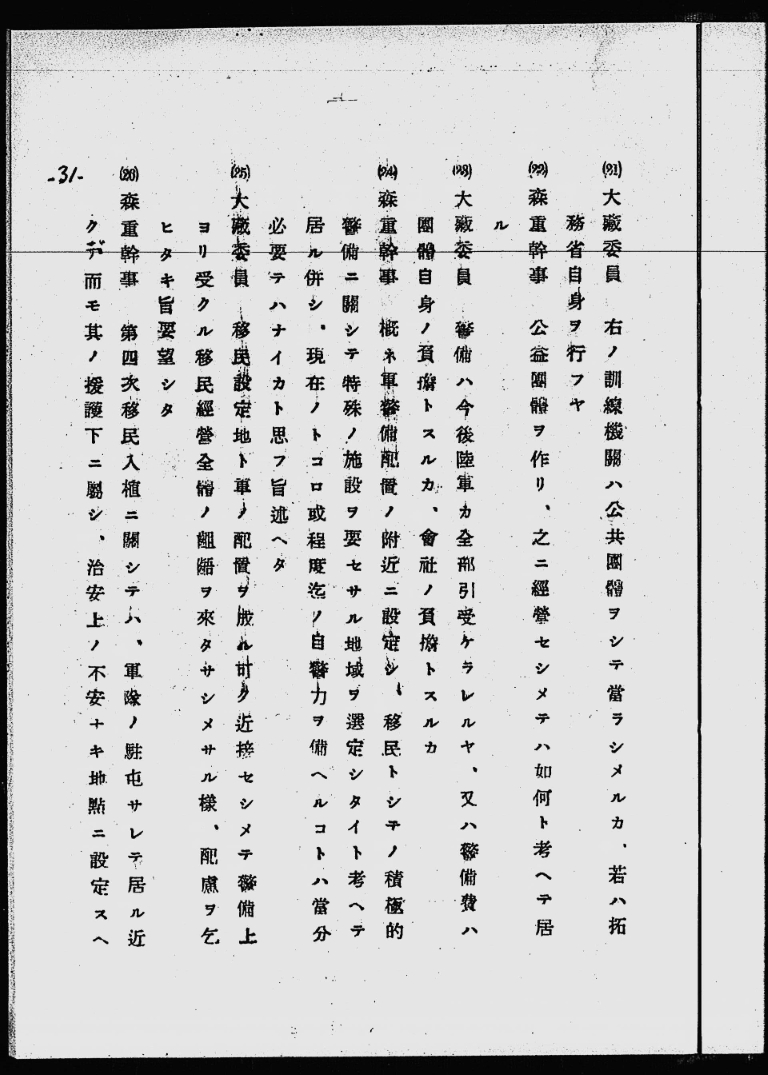 (21) 大藏委員　右ノ訓練機關ハ公共團體ヲシテ當ラシメルカ、若ハ拓
務省自身ヲ行フヤ
(22) 森重幹事　公益團體ヲ作リ、之ニ經營セシメテハ如何ト考ヘテ居
ル
(23) 大藏委員　警備ハ今後陸軍カ全部引受ケラレルヤ、又ハ警備費ハ
團體自身ノ負擔トスルカ、會社ノ負擔トスルカ
(24) 森重幹事　概ネ軍警備配置ノ附近ニ設定シ、移民トシテノ積極的
警備ニ關シテ特殊ノ施設ヲ要セサル地域ヲ選定シタイト考ヘテ
居ル併シ、現在ノトコロ或程度迄ノ自警力ヲ備ヘルコトハ當分
必要テハナイカト思フ旨述ヘタ
(25) 大藏委員　移民設定地ト軍ノ配置ヲ成ル可ク近接セシメテ警備上
ヨリ受クル移民經營全體ノ齟齬ヲ來タサシメサル樣、配慮ヲ乞
ヒタキ旨要望シタ
(26) 森重幹事　第四次移民入植ニ關シテハ、軍隊ノ駐屯サレテ居ル近
クデ而モ其ノ援護下ニ屬シ、治安上ノ不安ナキ地點ニ設定スヘ
-31-